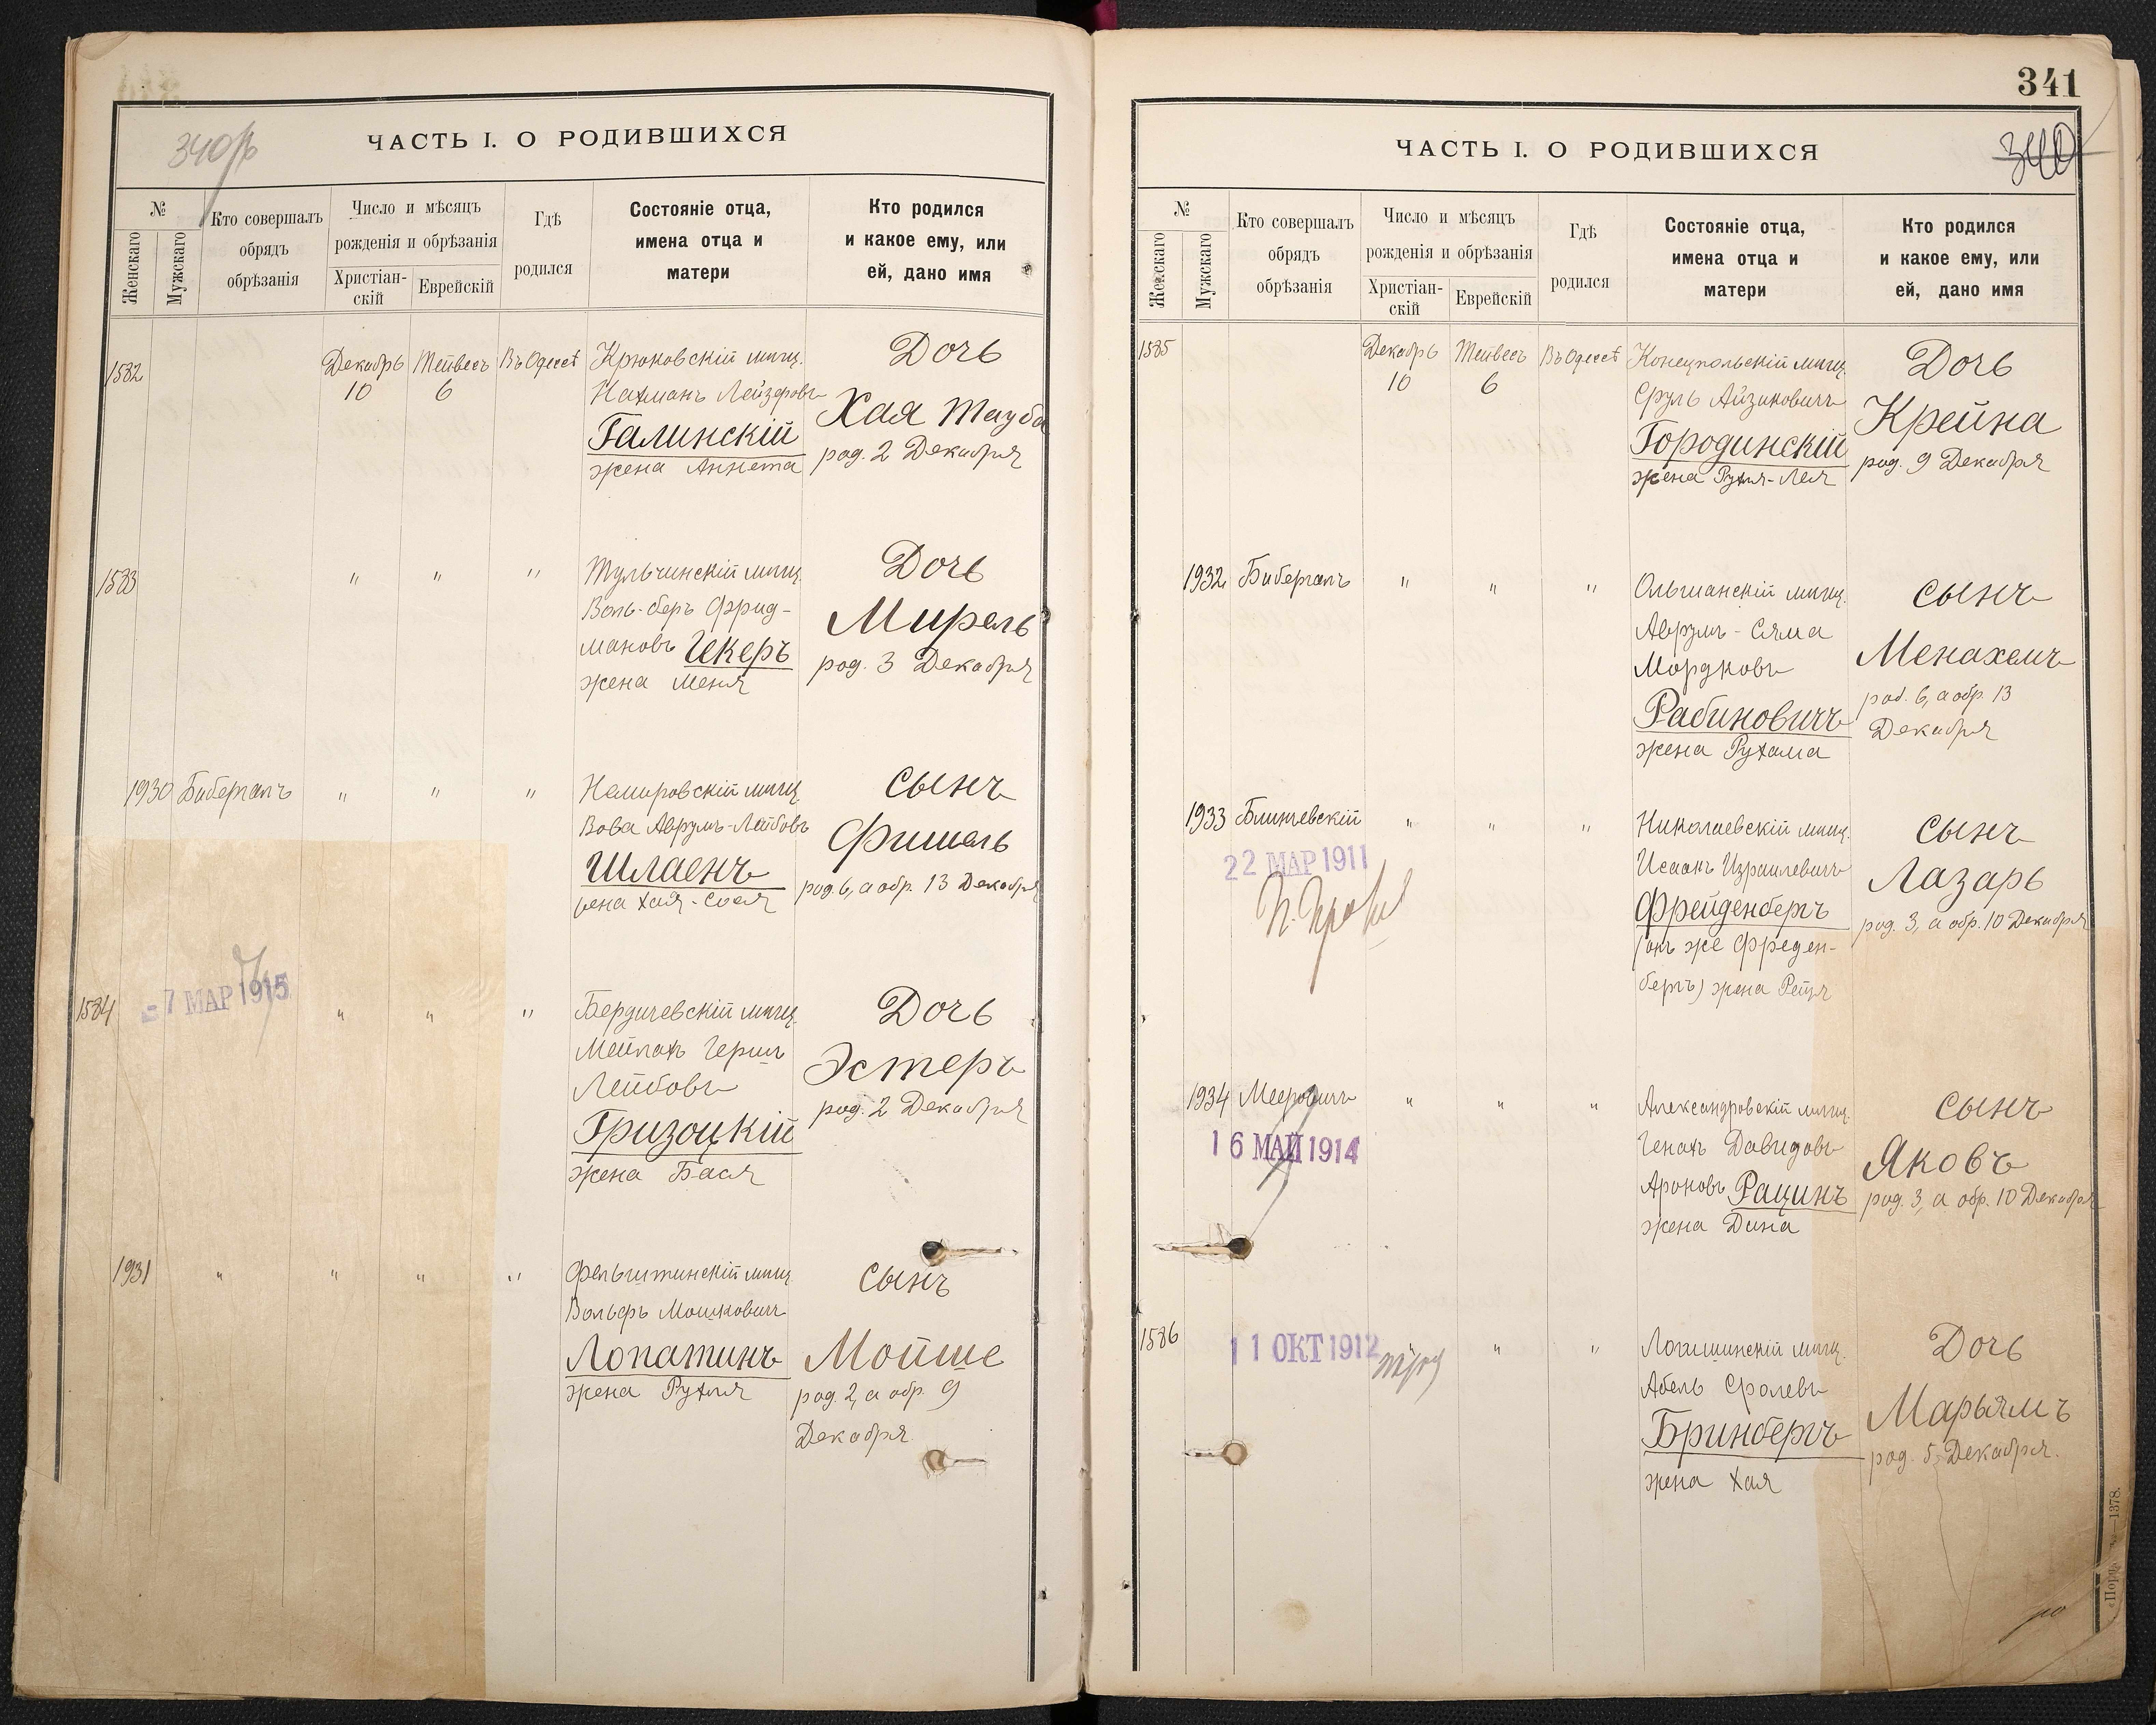 340 об
ЧАСТЬ I. О РОДИВШИХСЯ
№
Женскаго
Мужскаго
Кто совершалъ
обрядъ
обрѣзанія
Число и мѣсяцъ
рожденія и обрѣзанія
Христіан-
скій
Еврейскій
Гдѣ
родился
Состояніе отца,
имена отца и
матери
Кто родился
и какое ему, или
ей, дано имя
1582
Декабрь
10
Тейвесъ
6
Въ Одессѣ
Крюковскій мѣщ.
Нахманъ Лейзеровъ
Галинскій
жена Аннета
Дочь
Хая Тауба
род. 2 Декабря
1583
" " "
Тульчинскій мѣщ.
Воль-беръ Фрид-
мановъ Чекеръ
жена Меня
Дочь
Мирель
род. 3 Декабря
1930 Бибергалъ " " "
Немировскій мѣщ.
Вова Аврумъ-Лейбовъ
Шлаенъ
жена Хая-Сося
сынъ
Фишель
род. 6, а обр. 13 Декабря
1584
- 7 МАР 1915
" " "
Бердичевскій мѣщ.
Мейлах Герш
Лейбовъ
Гризоцкій
жена Бася
Дочь
Эстеръ
род. 2 Декабря
1931 " " " "
Фельштинскій мѣщ.
Вольфъ Мошковичъ
Лопатинъ
жена Рухля
сынъ
Мойше
род. 2, а обр. 9
Декабря.
341
340
ЧАСТЬ I. О РОДИВШИХСЯ
№
Женскаго
Мужскаго
Кто совершалъ
обрядъ
обрѣзанія
Число и мѣсяцъ
рожденія и обрѣзанія
Христіан-
скій
Еврейскій
Гдѣ
родился
Состояніе отца,
имена отца и
матери
Кто родился
и какое ему, или
ей, дано имя
1585
Декабрь
10
Тейвесъ
6
Въ Одессѣ
Конецпольскій мѣщ.
Сруль Айзиковичъ
Городинскій
жена Рухля-Лея
Дочь
Крейна
род. 9 Декабря
1932 Бибергалъ " " "
Ольшанскій мѣщ.
Аврумъ-Сяма
Мордковъ
Рабиновичъ
жена Рухама
сынъ
Менахемъ
род. 6, а обр. 13
Декабря
1933 Блишевскій " " "
22 МАР 1911
Николаевскій мѣщ.
Исаакъ Израилевичъ
Фрейденбергъ
(онъ же Фреден-
бергъ) жена Рейзя
сынъ
Лазарь
род. 3, а обр. 10 Декабря
1934 Мееровичъ " " "
16 МАЙ 1914
Александровскій мѣщ.
Генахъ Давидовъ
Ароновъ Рацинъ
жена Дина
сынъ
Яковъ
род. 3, а обр. 10 Декабря
1586
11 ОКТ 1912
" "
Логишинскій мѣщ.
Абель Сролевъ
Бринбергъ
жена Хая
Дочь
Марьямъ
род. 5 Декабря.
1378.